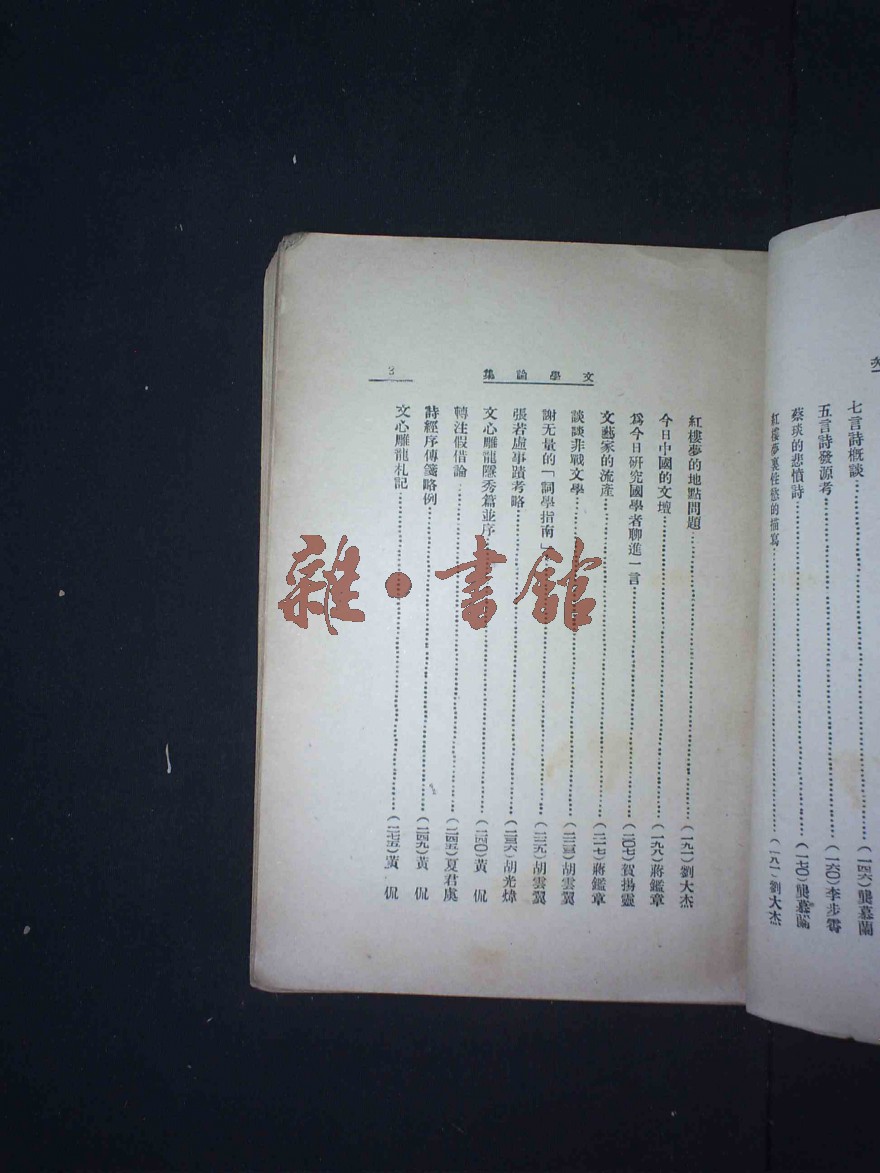 七言詩概談……(一四六)龔慕蘭
五言詩發源考……(一六〇)李步霄
蔡琰的悲憤詩……(一七〇)龔慕蘭
紅樓夢裏性慾的描寫……(一八一)劉大杰
文學論集
3
紅樓夢的地點問題……(一九一)劉大杰
今日中國的文壇……(一九八)蔣鑑章
爲今日研究國學者聊進一言……(二〇七)賀揚靈
文藝家的流產……(二一七)蔣鑑章
談談非戰文學……(二二三)胡雲翼
謝无量的「詞學指南」……(二二九)胡雲翼
張若虛事蹟考略……(二三六)胡光煒
文心雕龍隱秀篇並序……(二四〇)黃侃
轉注假借論……(二四五)夏君虞
詩經序傳箋略例……(二四九)黃侃
文心雕龍札記……(二七五)黃侃
雜·書館